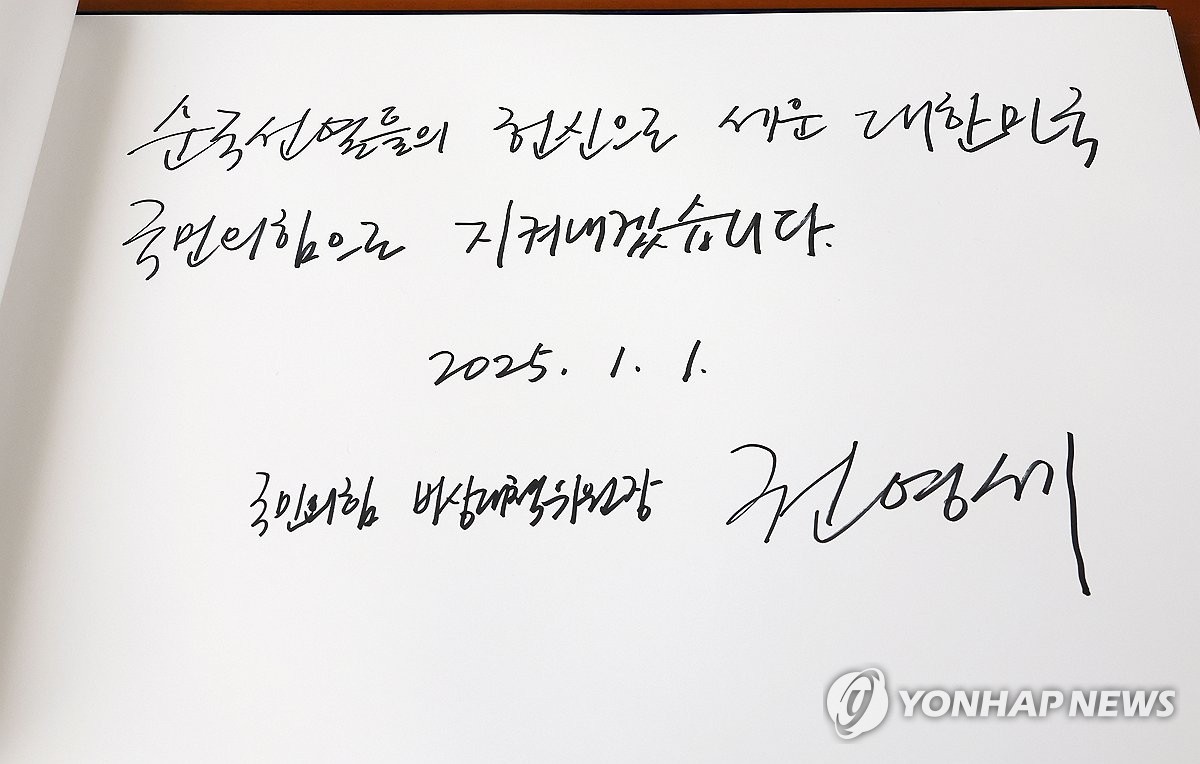 순국선열들의 헌신으로 세운 대한민국
국민의힘으로 지켜내겠습니다.
2025. 1. 1.
국민의힘 비상대책위원장 권영세
YONHAP NEWS